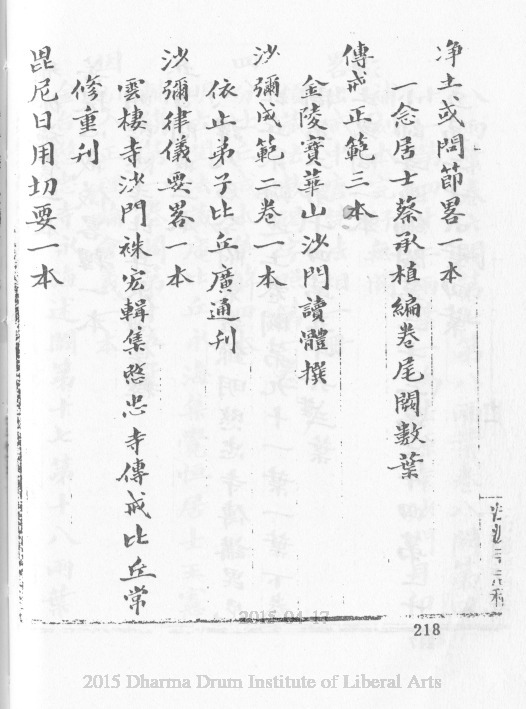 净土或問節畧一本
一念居士蔡承植編卷尾闕數葉
傳戒正範三本
金陵寳華山沙門讀體撰
沙彌成範二卷一本
依止弟子比丘廣通刊
沙彌律儀要畧一本
雲棲寺沙門祩宏輯集愍忠寺傳戒比丘常
修重刊
毘尼日用切要一本
218
2015-04-17
2015 Dharma Drum Institute of Liberal Arts